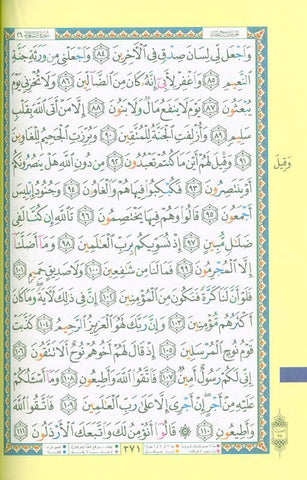 الجزء التاسع عشر سورة الشعراء ٢٦
وَٱجْعَل لِّي لِسَانَ صِدْقٍ فِي ٱلْآخِرِينَ ٨٤ وَٱجْعَلْنِي مِن وَرَثَةِ جَنَّةِ
ٱلنَّعِيمِ ٨٥ وَٱغْفِرْ لِأَبِي إِنَّهُۥ كَانَ مِنَ ٱلضَّآلِّينَ ٨٦ وَلَا تُخْزِنِي يَوْمَ
يُبْعَثُونَ ٨٧ يَوْمَ لَا يَنفَعُ مَالٌ وَلَا بَنُونَ ٨٨ إِلَّا مَنْ أَتَى ٱللَّهَ بِقَلْبٍ
سَلِيمٍ ٨٩ وَأُزْلِفَتِ ٱلْجَنَّةُ لِلْمُتَّقِينَ ٩٠ وَبُرِّزَتِ ٱلْجَحِيمُ لِلْغَاوِينَ
٩١ وَقِيلَ لَهُمْ أَيْنَ مَا كُنتُمْ تَعْبُدُونَ ٩٢ مِن دُونِ ٱللَّهِ هَلْ يَنصُرُونَكُمْ
أَوْ يَنتَصِرُونَ ٩٣ فَكُبْكِبُوا۟ فِيهَا هُمْ وَٱلْغَاوُۥنَ ٩٤ وَجُنُودُ إِبْلِيسَ
أَجْمَعُونَ ٩٥ قَالُوا۟ وَهُمْ فِيهَا يَخْتَصِمُونَ ٩٦ تَٱللَّهِ إِن كُنَّا لَفِي
ضَلَٰلٍ مُّبِينٍ ٩٧ إِذْ نُسَوِّيكُم بِرَبِّ ٱلْعَٰلَمِينَ ٩٨ وَمَآ أَضَلَّنَآ
إِلَّا ٱلْمُجْرِمُونَ ٩٩ فَمَا لَنَا مِن شَٰفِعِينَ ١٠٠ وَلَا صَدِيقٍ حَمِيمٍ ١٠١
فَلَوْ أَنَّ لَنَا كَرَّةً فَنَكُونَ مِنَ ٱلْمُؤْمِنِينَ ١٠٢ إِنَّ فِي ذَٰلِكَ لَآيَةً وَمَا كَانَ
أَكْثَرُهُم مُّؤْمِنِينَ ١٠٣ وَإِنَّ رَبَّكَ لَهُوَ ٱلْعَزِيزُ ٱلرَّحِيمُ ١٠٤ كَذَّبَتْ
قَوْمُ نُوحٍ ٱلْمُرْسَلِينَ ١٠٥ إِذْ قَالَ لَهُمْ أَخُوهُمْ نُوحٌ أَلَا تَتَّقُونَ ١٠٦
إِنِّي لَكُمْ رَسُولٌ أَمِينٌ ١٠٧ فَٱتَّقُوا۟ ٱللَّهَ وَأَطِيعُونِ ١٠٨ وَمَآ أَسْـَٔلُكُمْ
عَلَيْهِ مِنْ أَجْرٍ إِنْ أَجْرِيَ إِلَّا عَلَىٰ رَبِّ ٱلْعَٰلَمِينَ ١٠٩ فَٱتَّقُوا۟ ٱللَّهَ
وَأَطِيعُونِ ١١٠ قَالُوٓا۟ أَنُؤْمِنُ لَكَ وَٱتَّبَعَكَ ٱلْأَرْذَلُونَ ١١١
وَقِيلَ
٣٧١